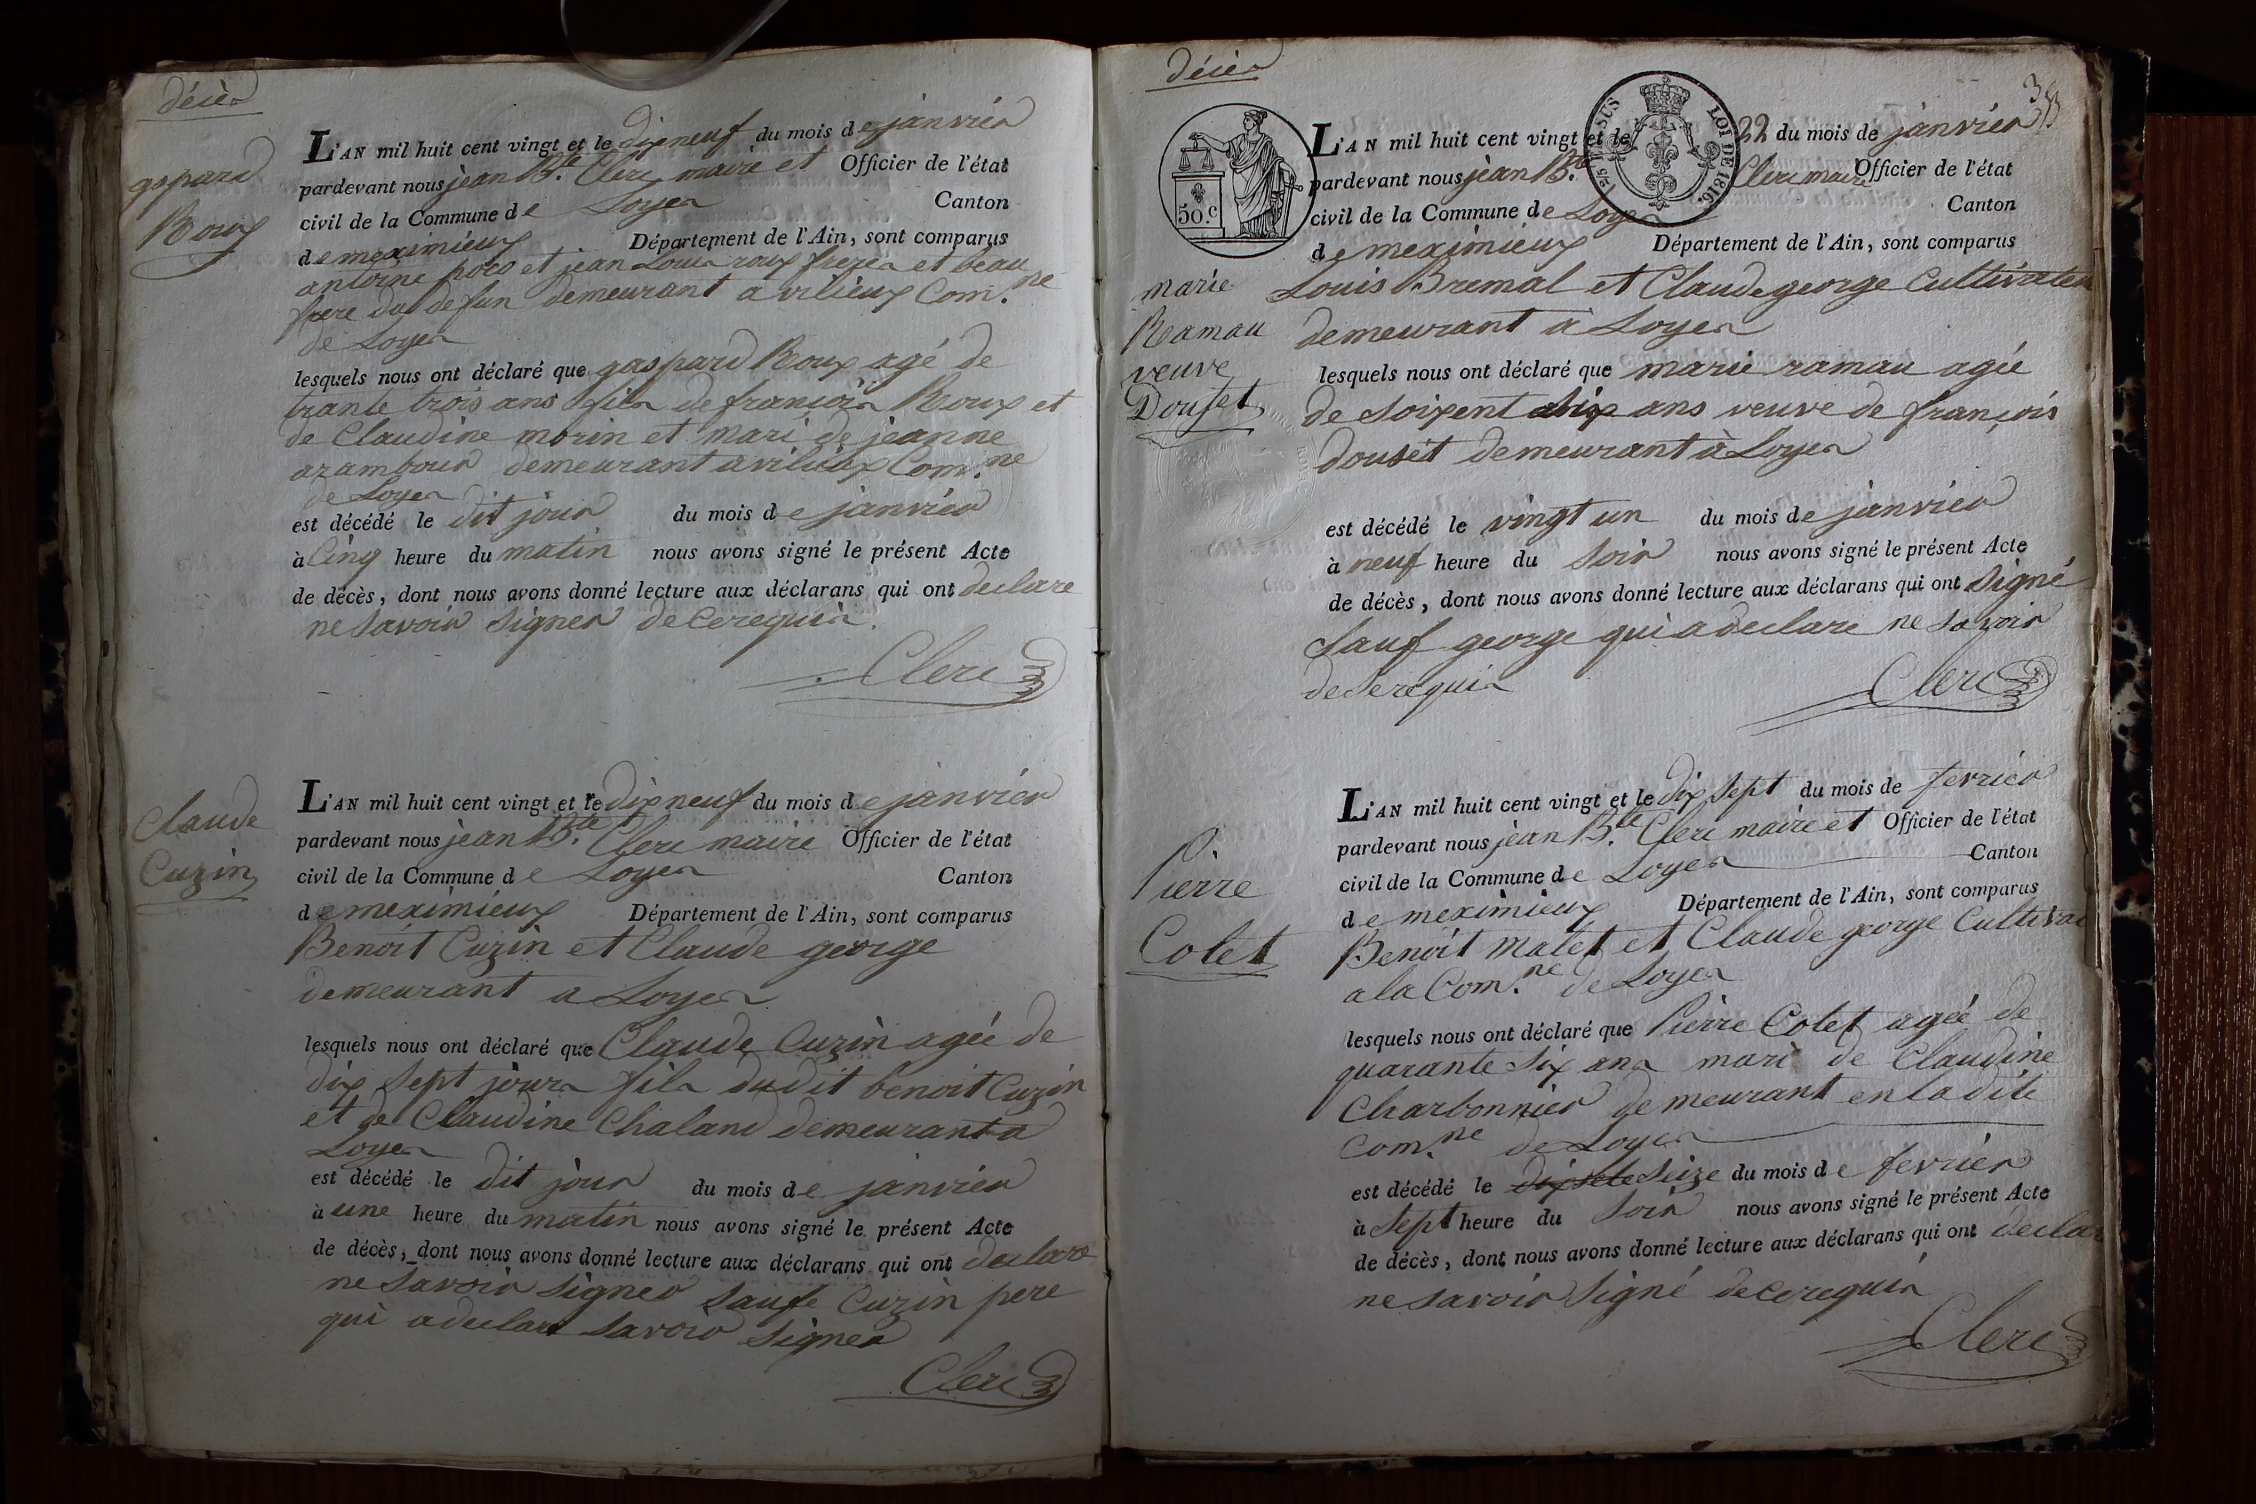 décès
gaspard
Roux
L'AN mil huit cent vingt et le dix neuf du mois de janvier
pardevant nous jean Bte. Clerc maire et Officier de l'état
civil de la Commune de Loyes Canton
de meximieux Département de l'Ain, sont comparus
antoine et jean Louis roux frere et beau
frere du defun demeurant a vilieux Com.ne
de Loyes
lesquels nous ont déclaré que gaspard Roux agé de
trante trois ans fils de francois Roux et
de Claudine morin et mari de jeanne
azambour demeurant a vilieux Com.ne
de Loyes
est décédé le dit jour du mois de janvier
à Cinq heure du matin nous avons signé le présent Acte
de décès, dont nous avons donné lecture aux déclarans qui ont declare
ne savoir signer de ce requis.
Clerc
Claude
Cuzin
L'AN mil huit cent vingt et le dix neuf du mois de janvier
pardevant nous jean Bte. Clerc maire Officier de l'état
civil de la Commune de Loyes Canton
de meximieux Département de l'Ain, sont comparus
Benoit Cuzin et Claude george
demeurant a Loyes
lesquels nous ont déclaré que Claude Cuzin agée de
dix sept jours fils dudit benoit Cuzin
et de Claudine Chaland demeurant a
Loyes
est décédé le dit jour du mois de janvier
à une heure du matin nous avons signé le présent Acte
de décès, dont nous avons donné lecture aux déclarans qui ont declare
ne savoir signer saufe Cuzin pere
qui a declare savoir signer
Clerc
décès
38
50.c
LOI DE 1816.
marie
Ramau
veuve
Douset
L'AN mil huit cent vingt et le 22 du mois de janvier
pardevant nous jean Bte. Clerc maire Officier de l'état
civil de la Commune de Loyes Canton
de meximieux Département de l'Ain, sont comparus
Louis Bremal et Claude george Cultivateu
demeurant a Loyes
lesquels nous ont déclaré que marie ramau agée
de soixent dix ans veuve de françois
douset demeurant à Loyes
est décédé le vingt un du mois de janvier
à neuf heure du soir nous avons signé le présent Acte
de décès, dont nous avons donné lecture aux déclarans qui ont signé
sauf george qui a declare ne savoir
de se requis
Clerc
Pierre
Colet
L'AN mil huit cent vingt et le dix sept du mois de fevrier
pardevant nous jean Bte. Clerc maire et Officier de l'état
civil de la Commune de Loyes Canton
de meximieux Département de l'Ain, sont comparus
Benoit matet et Claude george Cultivat
a la Com.ne de Loyes
lesquels nous ont déclaré que Pierre Colet agée de
quarante six ans mari de Claudine
Charbonnier demeurant en la dite
Com.ne de Loyes
est décédé le seize du mois de fevrier
à sept heure du soir nous avons signé le présent Acte
de décès, dont nous avons donné lecture aux déclarans qui ont declar
ne savoir signé de ce requis
Clerc